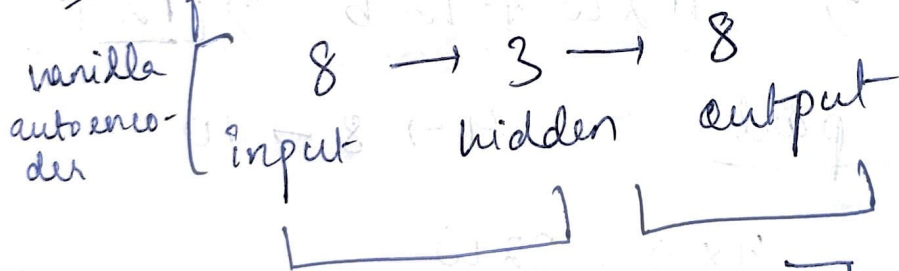 vanilla
autoenco-
der
8 → 3 → 8
input hidden output